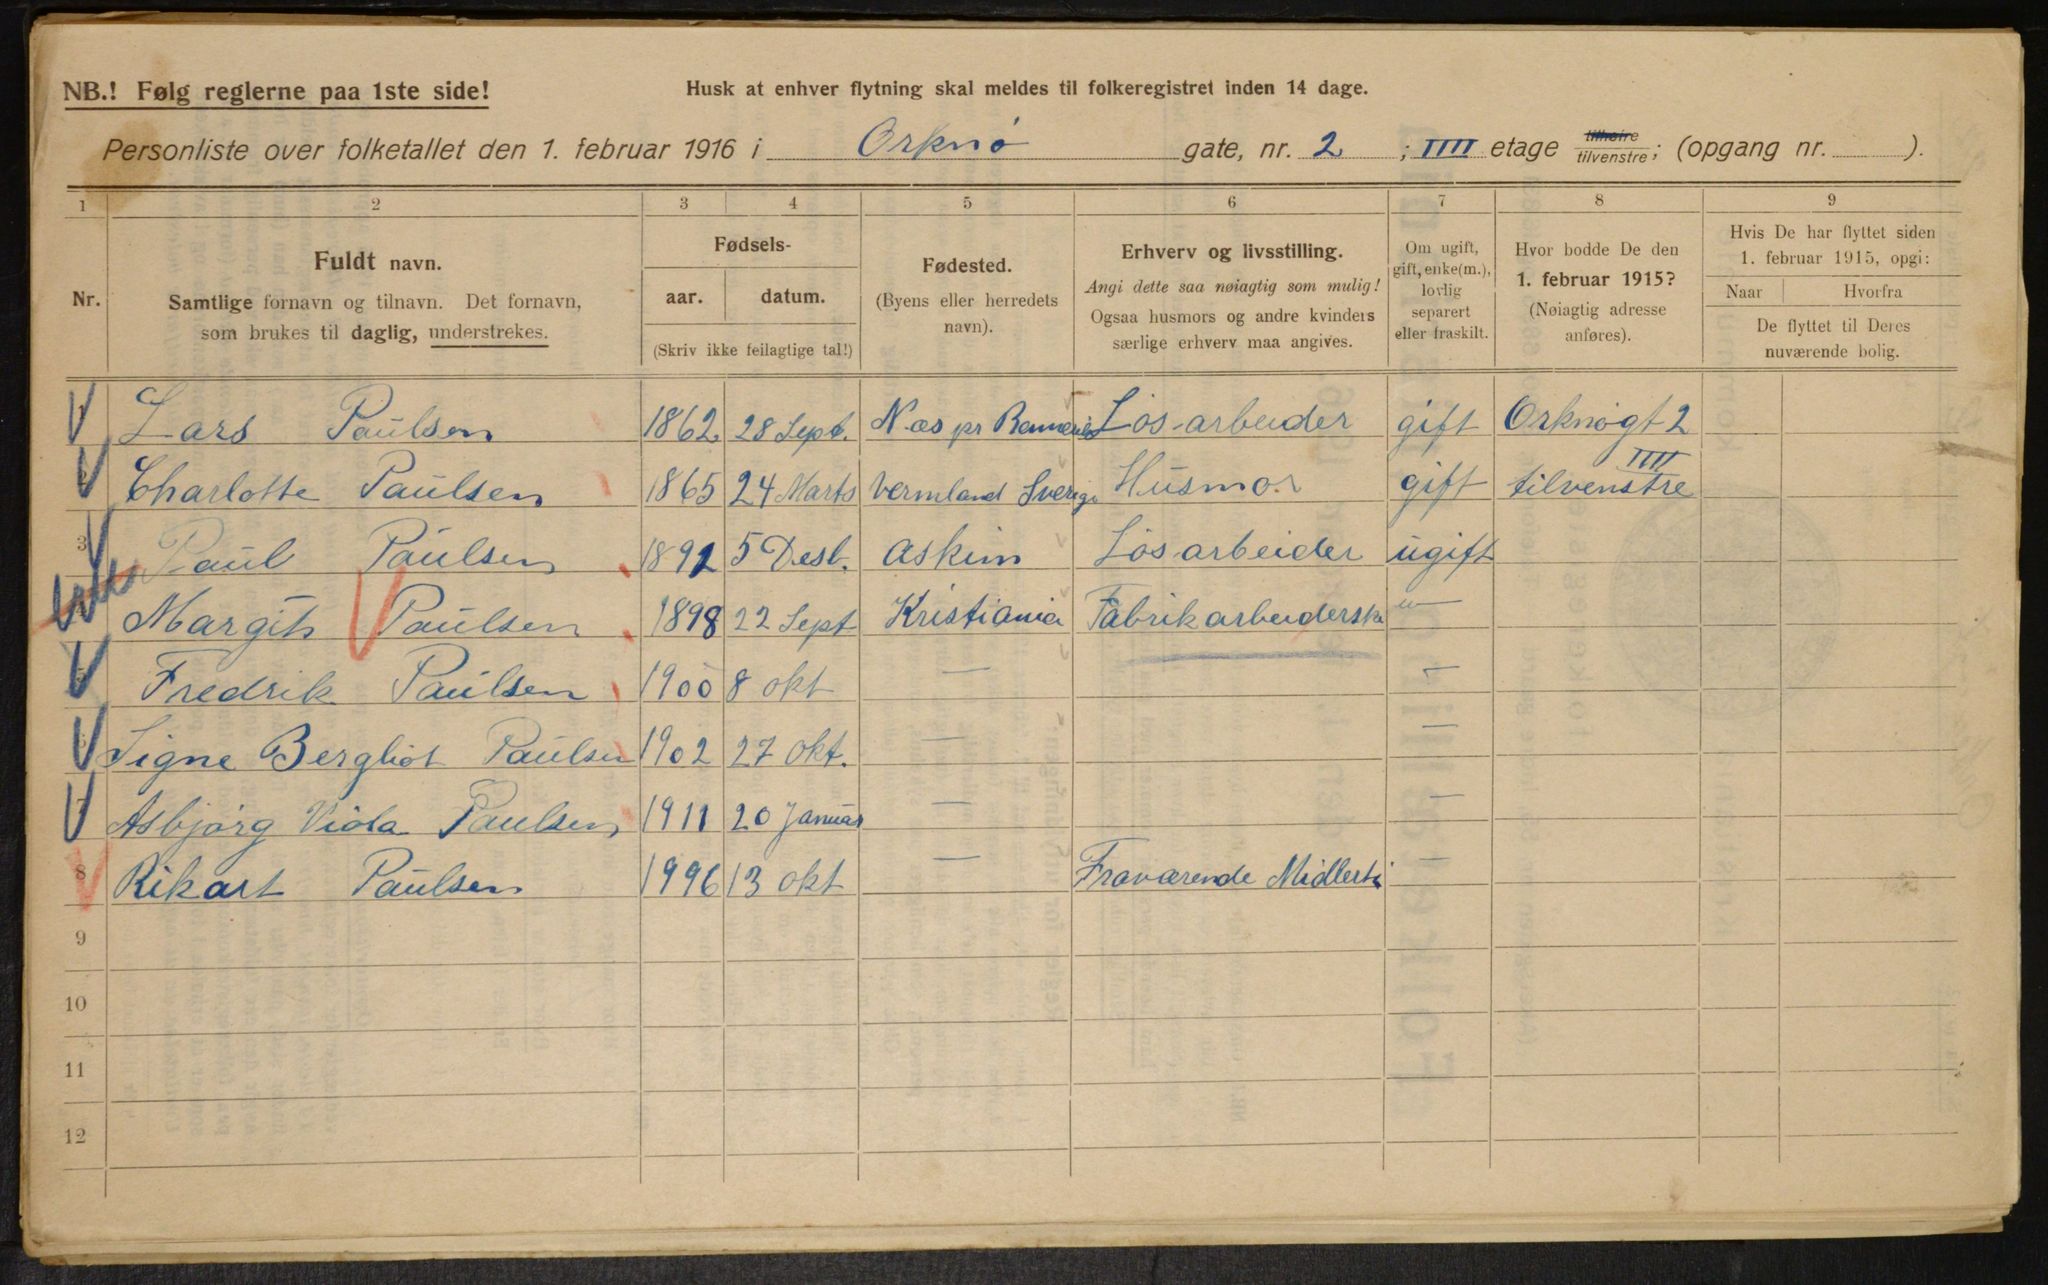 NB.! Følg reglerne paa 1ste side!
Husk at enhver flytning skal meldes til folkeregistret inden 14 dage.
Personliste over folketallet den 1. februar 1916 i Orknø gate, nr. 2 ; IIII etage tilhøire tilvenstre; (opgang nr. ).
1 2 3 4 5 6 7 8 9
Nr.
Fuldt navn.
Samtlige fornavn og tilnavn. Det fornavn,
som brukes til daglig, understrekes.
Fødsels-
aar. datum.
(Skriv ikke feilagtige tal!)
Fødested.
(Byens eller herredets
navn).
Erhverv og livsstilling.
Angi dette saa nøiagtig som mulig!
Ogsaa husmors og andre kvinders
særlige erhverv maa angives.
Om ugift,
gift, enke(m.),
lovlig
separert
eller fraskilt.
Hvor bodde De den
1. februar 1915?
(Nøiagtig adresse
anføres).
Hvis De har flyttet siden
1. februar 1915, opgi:
Naar Hvorfra
De flyttet til Deres
nuværende bolig.
Lars Paulsen 1862 28 Sept. Næs pr Løsarbeider gift Orknøgt 2
Charlotte Paulsen 1865 24 Marts Vermland Sverige Husmor gift tilvenstre IIII
3 Paul Paulsen 1891 5 Desb. Askim Løsarbeider ugift
Margith Paulsen 1898 22 Sept Kristiania Fabrikarbeiderske —
5 Fredrik Paulsen 1900 8 okt — —
6 Signe Bergliot Paulsen 1902 27 okt. — —
7 Asbjørg Viola Paulsen 1911 20 Januar — —
8 Rikart Paulsen 1996 13 okt — Fraværende Midlerti —
9
10
11
12